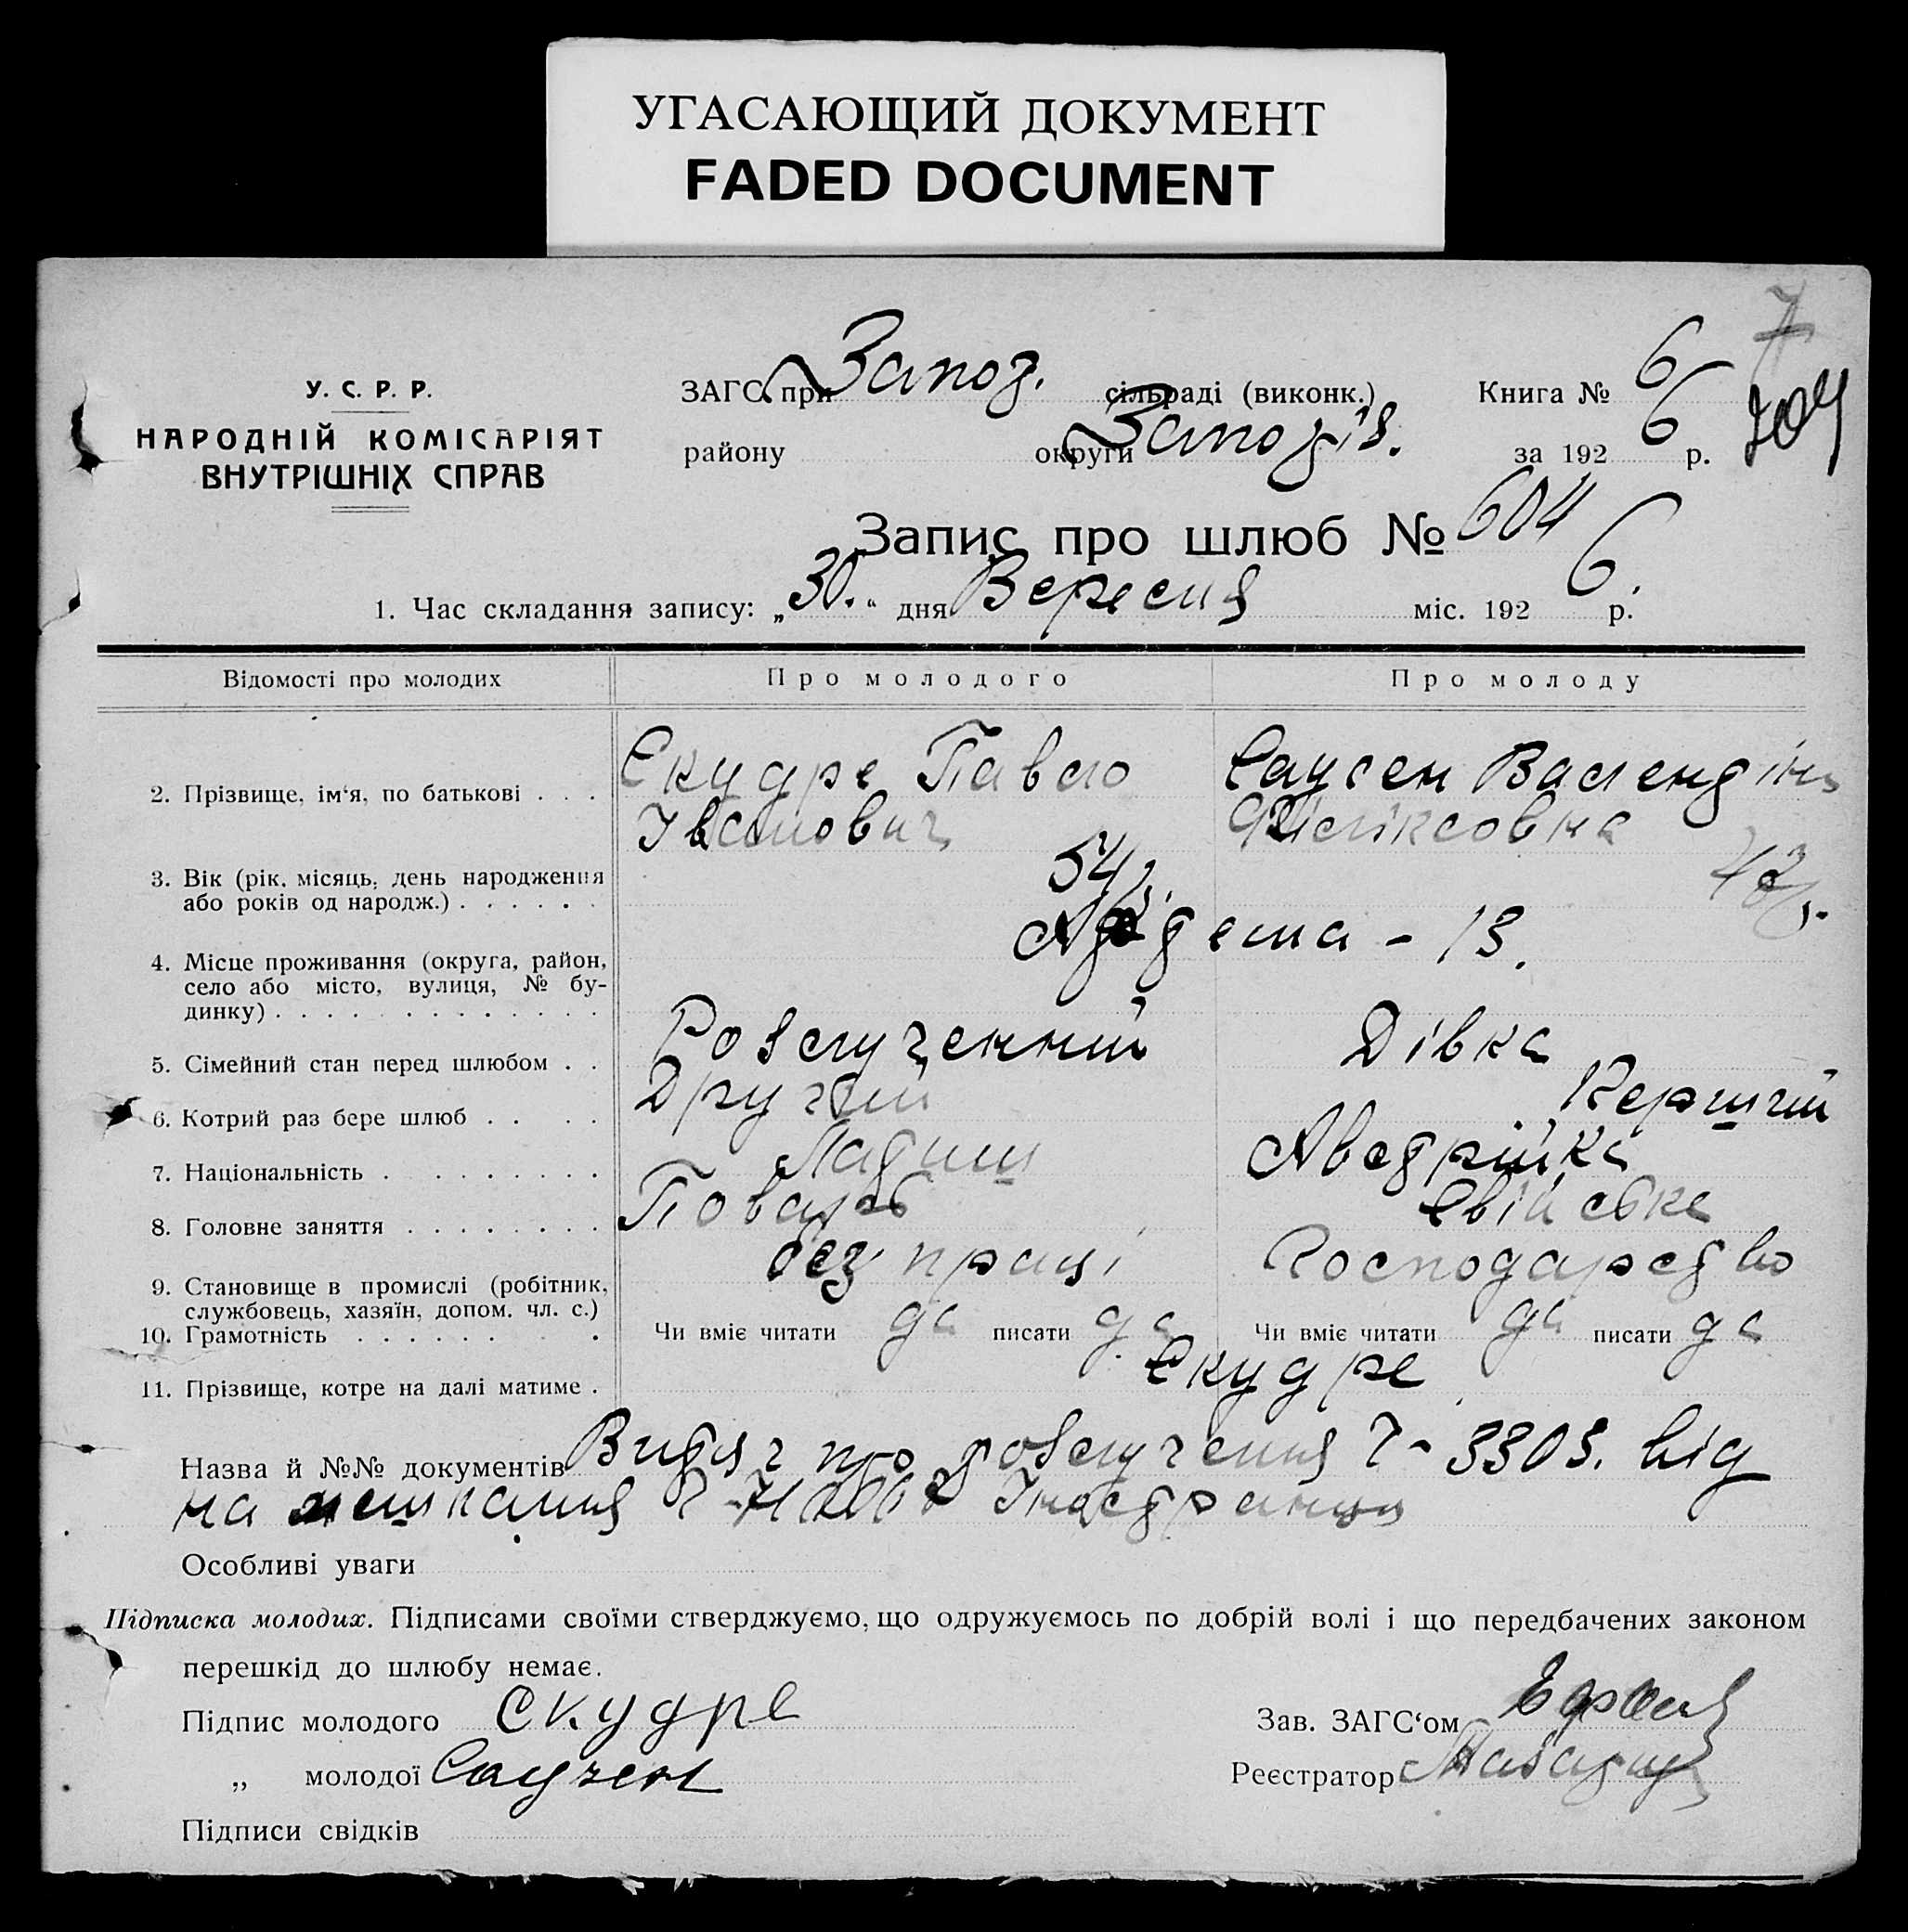 УГАСАЮЩИЙ ДОКУМЕНТ
FADED DOCUMENT
7
У. С. Р. Р.
НАРОДНІЙ КОМІСАРІЯТ
ВНУТРІШНІХ СПРАВ
ЗАГС при Запоз. сільраді (виконк.) Книга № 6
району округи Запоріз. за 192 6 р.
204
Запис про шлюб № 604
1. Час складання запису: „30.“ дня Вересня міс. 192 6 р.
Відомості про молодих Про молодого Про молоду
2. Прізвище, ім‘я, по батькові . . . Скудре Павло Саусен Валентіна
Іванович Феліксовна
3. Вік (рік, місяць, день народження 54 р. 42 р.
або років од народж.) . . . . . .
4. Місце проживання (округа, район, – 13.
село або місто, вулиця, № бу-
динку) . . . . . . . . . . . . .
5. Сімейний стан перед шлюбом . . Розлученний Дівка
6. Котрий раз бере шлюб . . . . Другий Перший
7. Національність . . . . . . . . Латиш Австрійка
8. Головне заняття . . . . . . . . Повар Свійське
9. Становище в промислі (робітник, без праці Господарство
службовець, хазяїн, допом. чл. с.)
10. Грамотність . . . . . . . . Чи вміє читати да писати да Чи вміє читати да писати да
11. Прізвище, котре на далі матиме . Скудре
Назва й №№ документів Витяг про розлучення Ч – 3303. від
на мешкання Ч Іностранця
Особливі уваги
Підписка молодих. Підписами своїми стверджуємо, що одружуємось по добрій волі і що передбачених законом
перешкід до шлюбу немає.
Підпис молодого Скудре Зав. ЗАГС‘ом
„ молодої Саузен Реєстратор
Підписи свідків